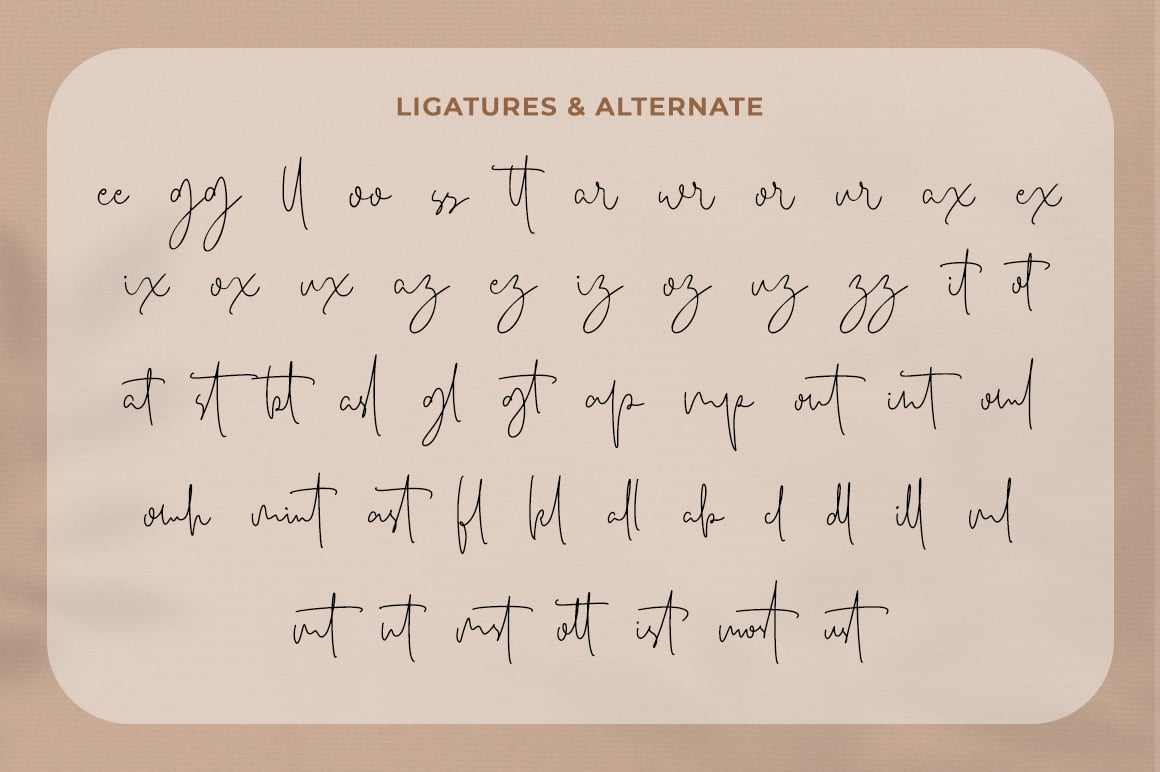 LIGATURES & ALTERNATE
ee gg ll oo ss tt ar wr or ur ax ex
ix ox ux az ez iz oz uz zz it ot
at st bt asl gl gt out int
mint ast fl kl all d dl ill
nt ott ist most ust